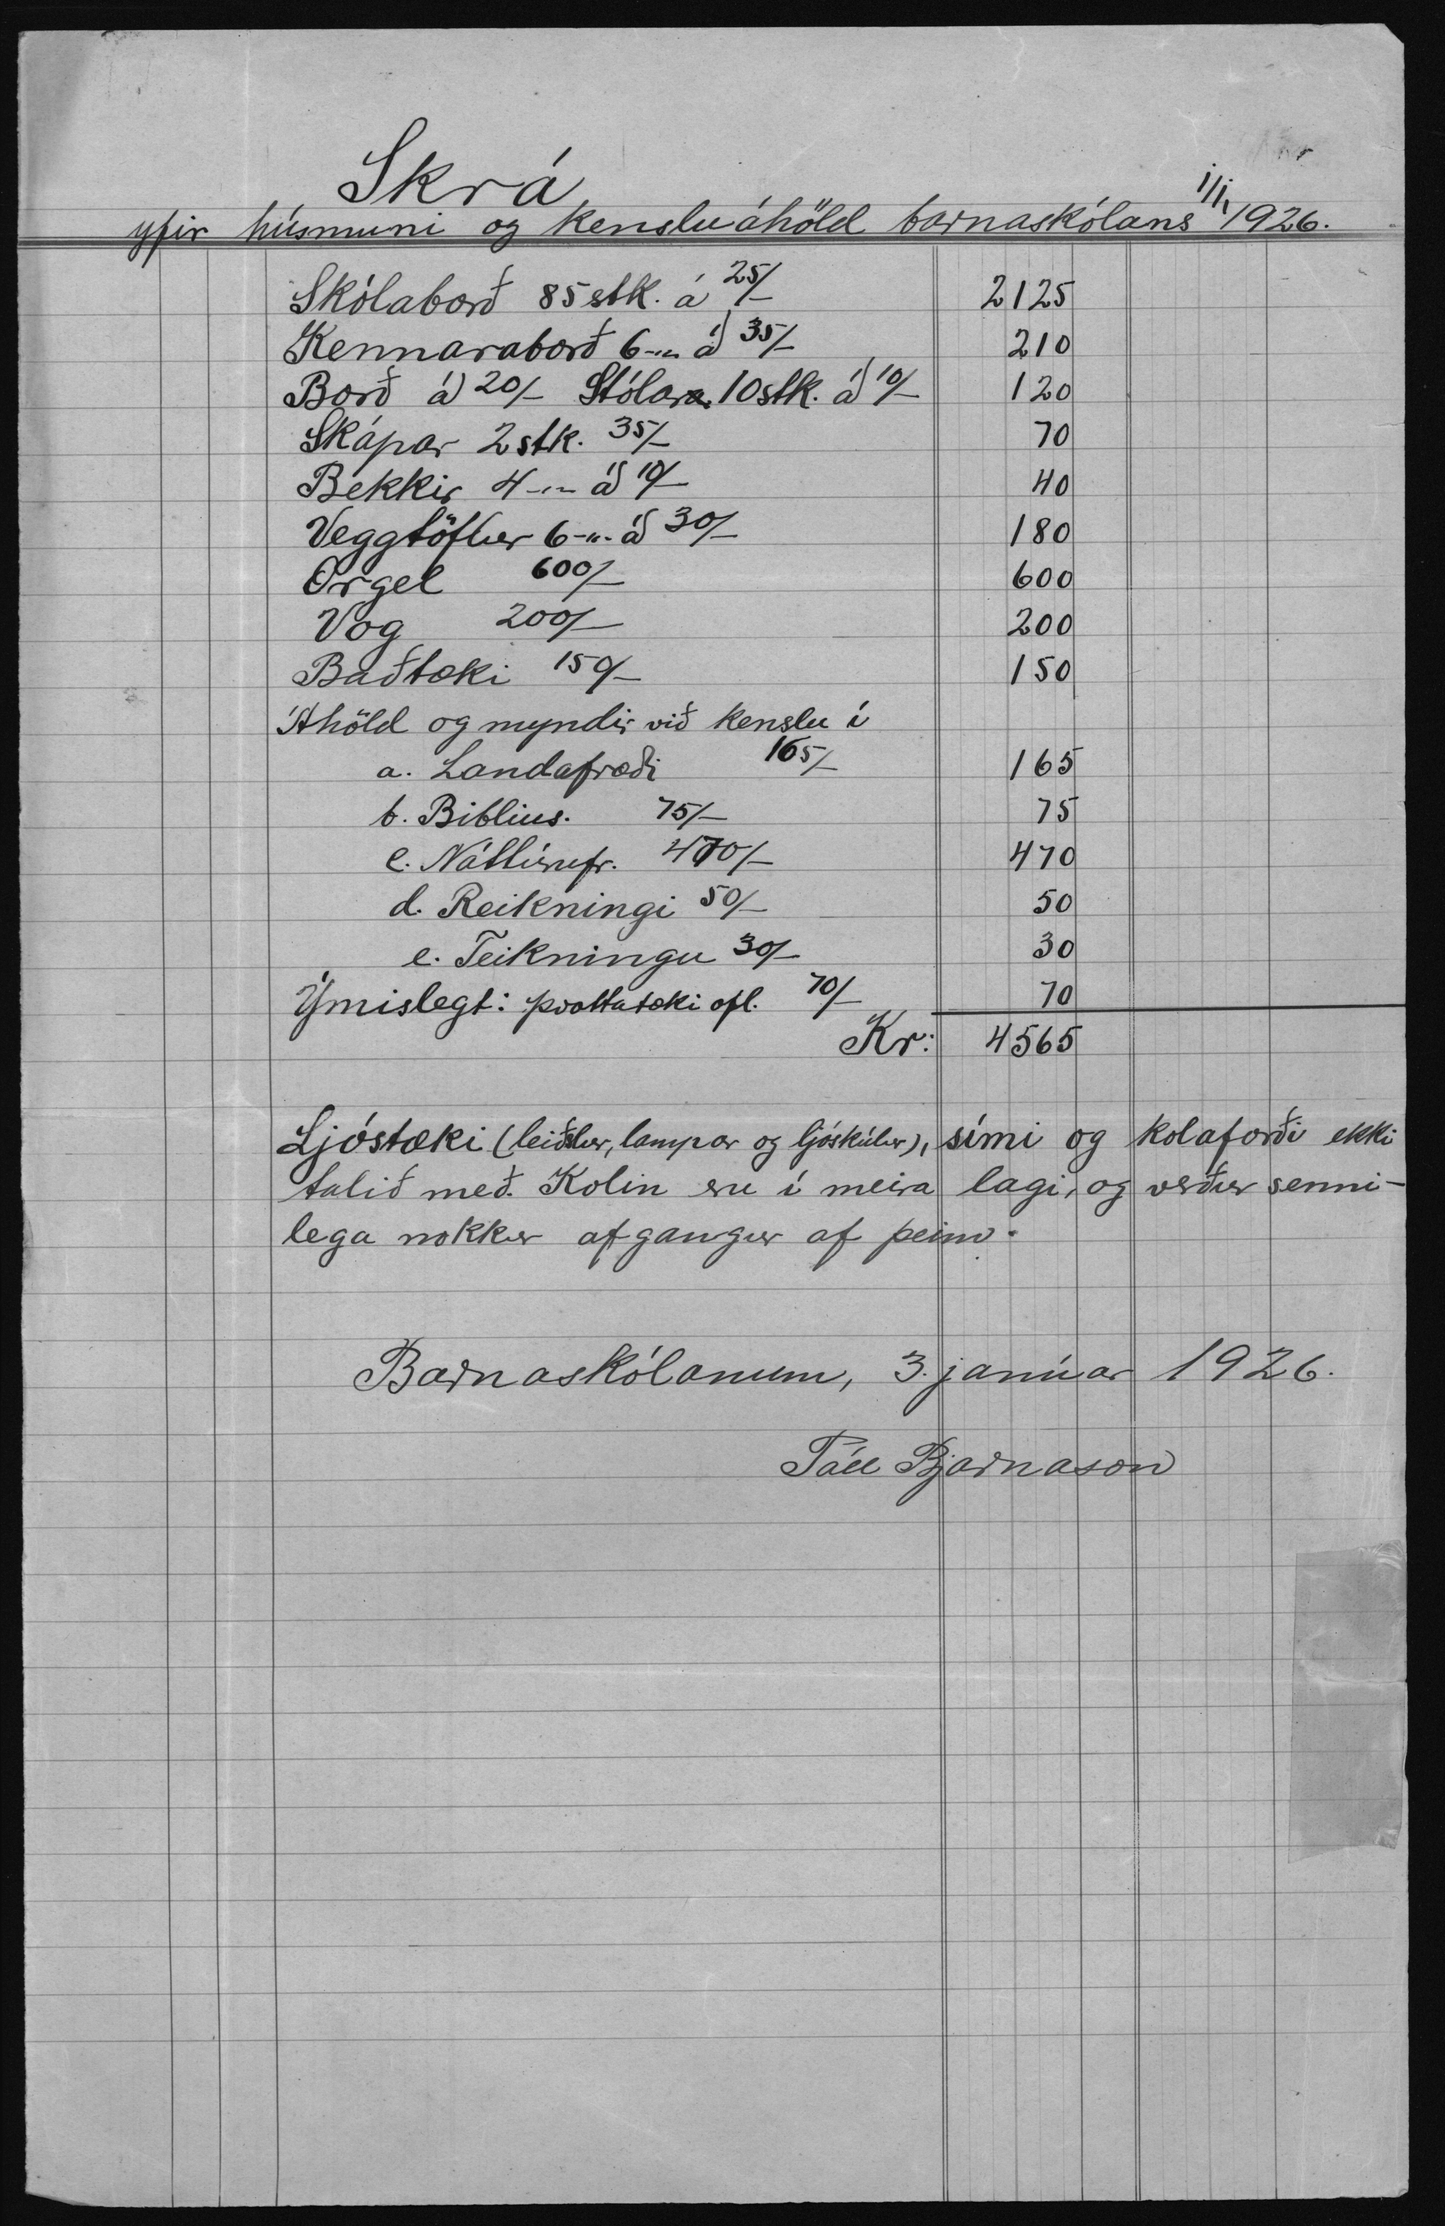 Skrá
yfir húsmuni og kensluáhöld barnaskólans 1/1, 1926.
Skólaborð 85 stk. á 25/- 2125
Kennaraborð 6 -"- á 35/- 210
Borð á 20/- Stólar 10 stk. á 10/- 120
Skápar 2 stk. 35/- 70
Bekkir 4 -"- á 10/- 40
Veggtöflur 6 -"- á 30/- 180
Orgel 600/- 600
Vog 200/- 200
Baðtæki 150/- 150
Áhöld og myndir við kenslu í
a. Landafræði 165/- 165
b. Biblius. 75/- 75
c. Náttúrufr. 470/- 470
d. Reikningi 50/- 50
e. Teikningu 30/- 30
Ýmislegt: þvottatæki ofl. 70/- 70
Kr: 4565
Ljóstæki (leiðslur, lampar og ljóskúlur), sími og kolaforði ekki
talið með. Kolin eru í meira lagi, og verður senni-
lega nokkur afgangur af þeim.
Barnaskólanum, 3. janúar 1926.
Páll Bjarnason